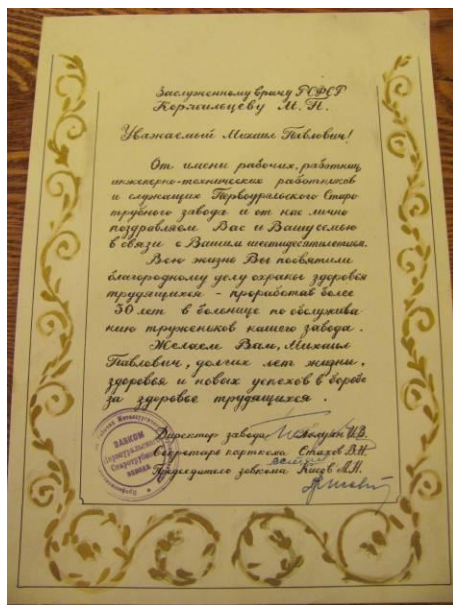 Заслуженному врачу РСФСР
Коржильцеву М. П.
Уважаемый Михаил Павлович!
От имени рабочих, работниц
инженерно-технических работников
и служащих Первоуральского Старо
трубного завода и от нас лично
поздравляем Вас и Вашу семью
в связи с Вашим шестидесятилетием.
Всю жизнь Вы посвятили
благородному делу охраны здоровья
трудящихся - проработав более
30 лет в больнице по обслужива
нию тружеников нашего завода.
Желаем Вам, Михаил
Павлович, долгих лет жизни,
здоровья и новых успехов в борьбе
за здоровье трудящихся.
Директор завода И.В.
Секретарь парткома Стахов В.Н.
Председатель завкома Кисов А.Н.
ЗАВКОМ
Первоуральского
Старотрубного
завода